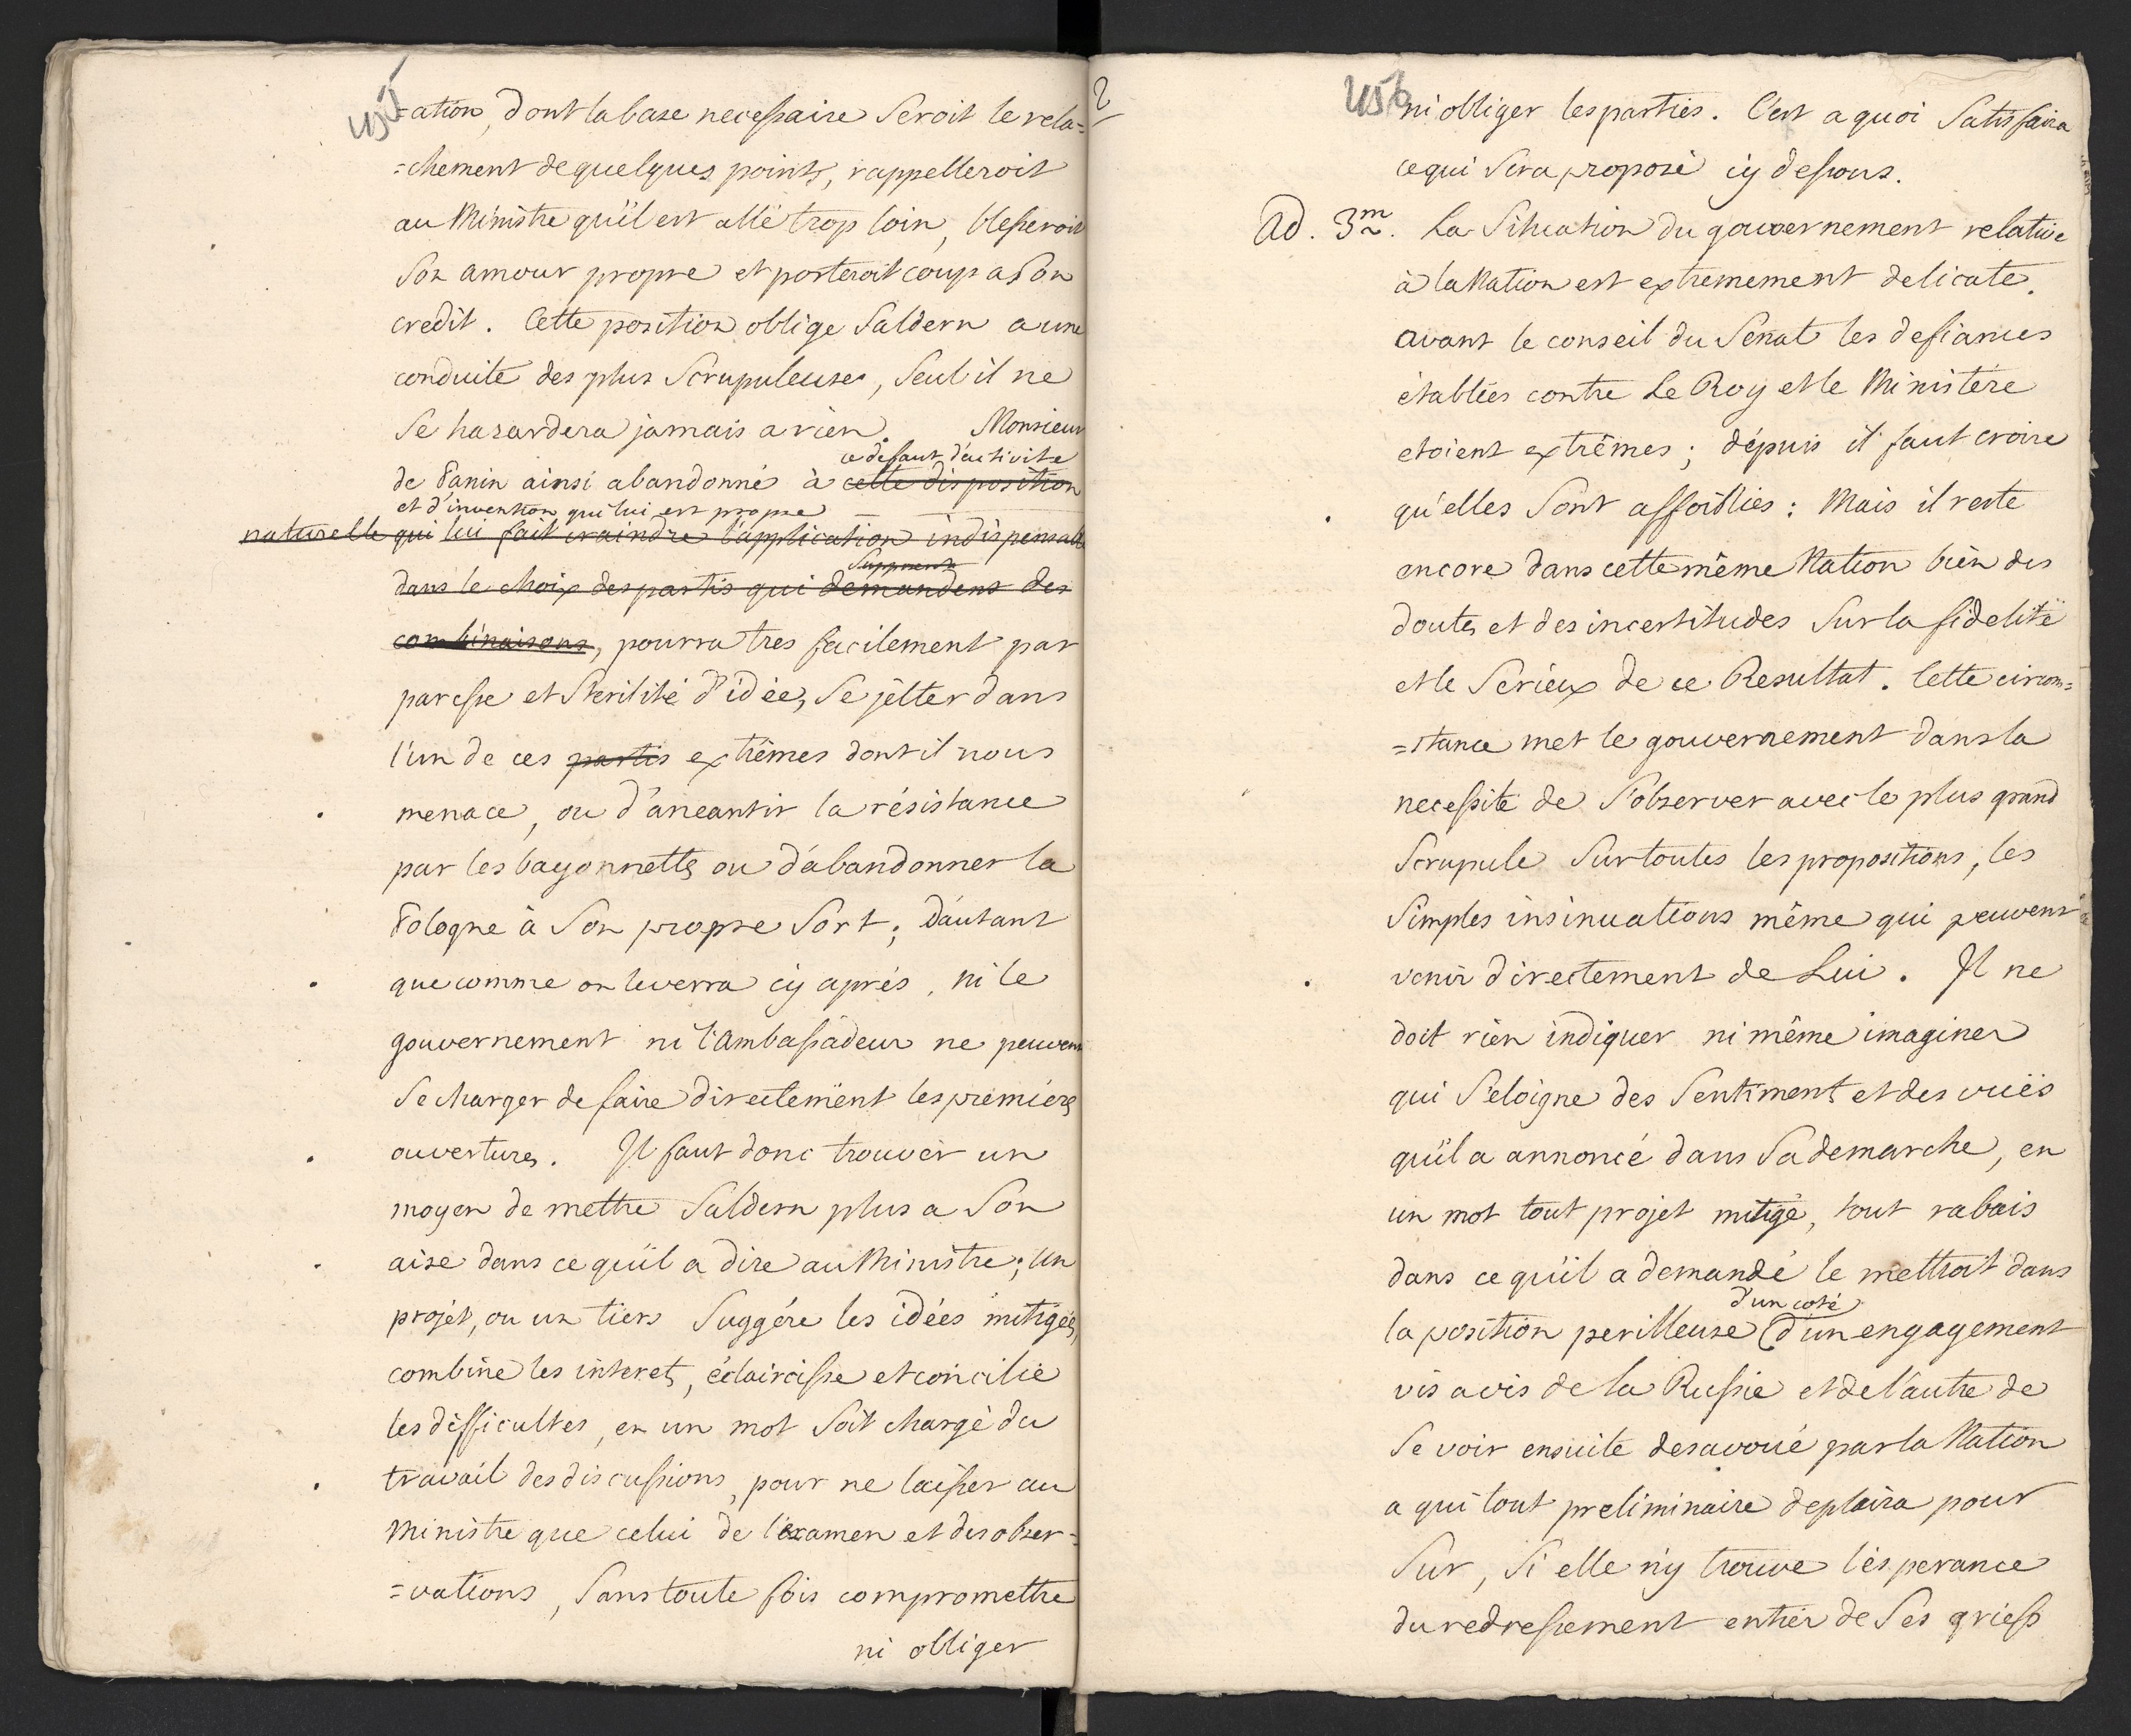 =ation, dont la base necessaire seroit le rela=
=chement de quelques points, rappelleroit
au Ministre qu'il est allé trop loin, blesseroit
son amour propre et porteroit coup a son
credit. Cette position oblige Saldern a une
conduite des plus scrupuleuses, seul il ne
se hazardera jamais a rien. Monsieur
ce defaut d'activite
de Panin ainsi abandonné à cette disposition
et d'invention qui lui est propre
naturelle qui lui fait craindre l'application indispensable
supposent
dans le choix des partis qui demandent des
combinaisons, pourra tres facilement par
paresse et sterilité d'idées, se jetter dans
l'un de ces partis extrêmes dont il nous
menace, ou d'aneantir la résistance
par les bayonnettes ou d'abandonner la
Pologne à son propre sort; d'autant
que comme on le verra cy aprés, ni le
gouvernement ni l'ambassadeur ne peuvent
se charger de faire directement les premieres
ouvertures. Il faut donc trouver un
moyen de mettre Saldern plus a son
aise dans ce qu'il a dire au Ministre; un
projet, ou un tiers suggére les idées mitigées,
combine les interets, éclaircisse et concilie
les difficultes, en un mot soit chargé du
travail des discussions, pour ne laisser au
Ministre que celui de l'examen et des obser=
=vations, sans toute fois compromettre
ni obliger
2
456
ni obliger les parties. C'est a quoi satisfaira
ce qui sera proposé cy dessous.
Ad. 3m. La situation du gouvernement relative
à la Nation est extremement delicate.
avant le conseil du Senat les defiances
établies contre Le Roy et le Ministére
etoient extrêmes; dépuis il faut croire
qu'elles sont affoiblies: Mais il reste
encore dans cette même Nation bien des
doutes et des incertitudes sur la fidelité
et le serieux de ce Resultat. Cette circon=
=stance met le gouvernement dans la
necessite de s'observer avec le plus grand
scrupule sur toutes les propositions, les
simples insinuations même qui peuvent
venir directement de Lui. Il ne
doit rien indiquer ni même imaginer
qui s'eloigne des sentiments et des vuës
qu'il a annoncé dans sa demarche, en
un mot tout projet mitigé, tout rabais
dans ce qu'il a demandé le mettroit dans
d'un coté
la position perilleuse d'un engagement
vis a vis de la Russie et de l'autre de
se voir ensuite desavoué par la Nation
a qui tout preliminaire deplaira pour
sur, si elle n'y trouve l'esperance
du redressement entier de ses griefs